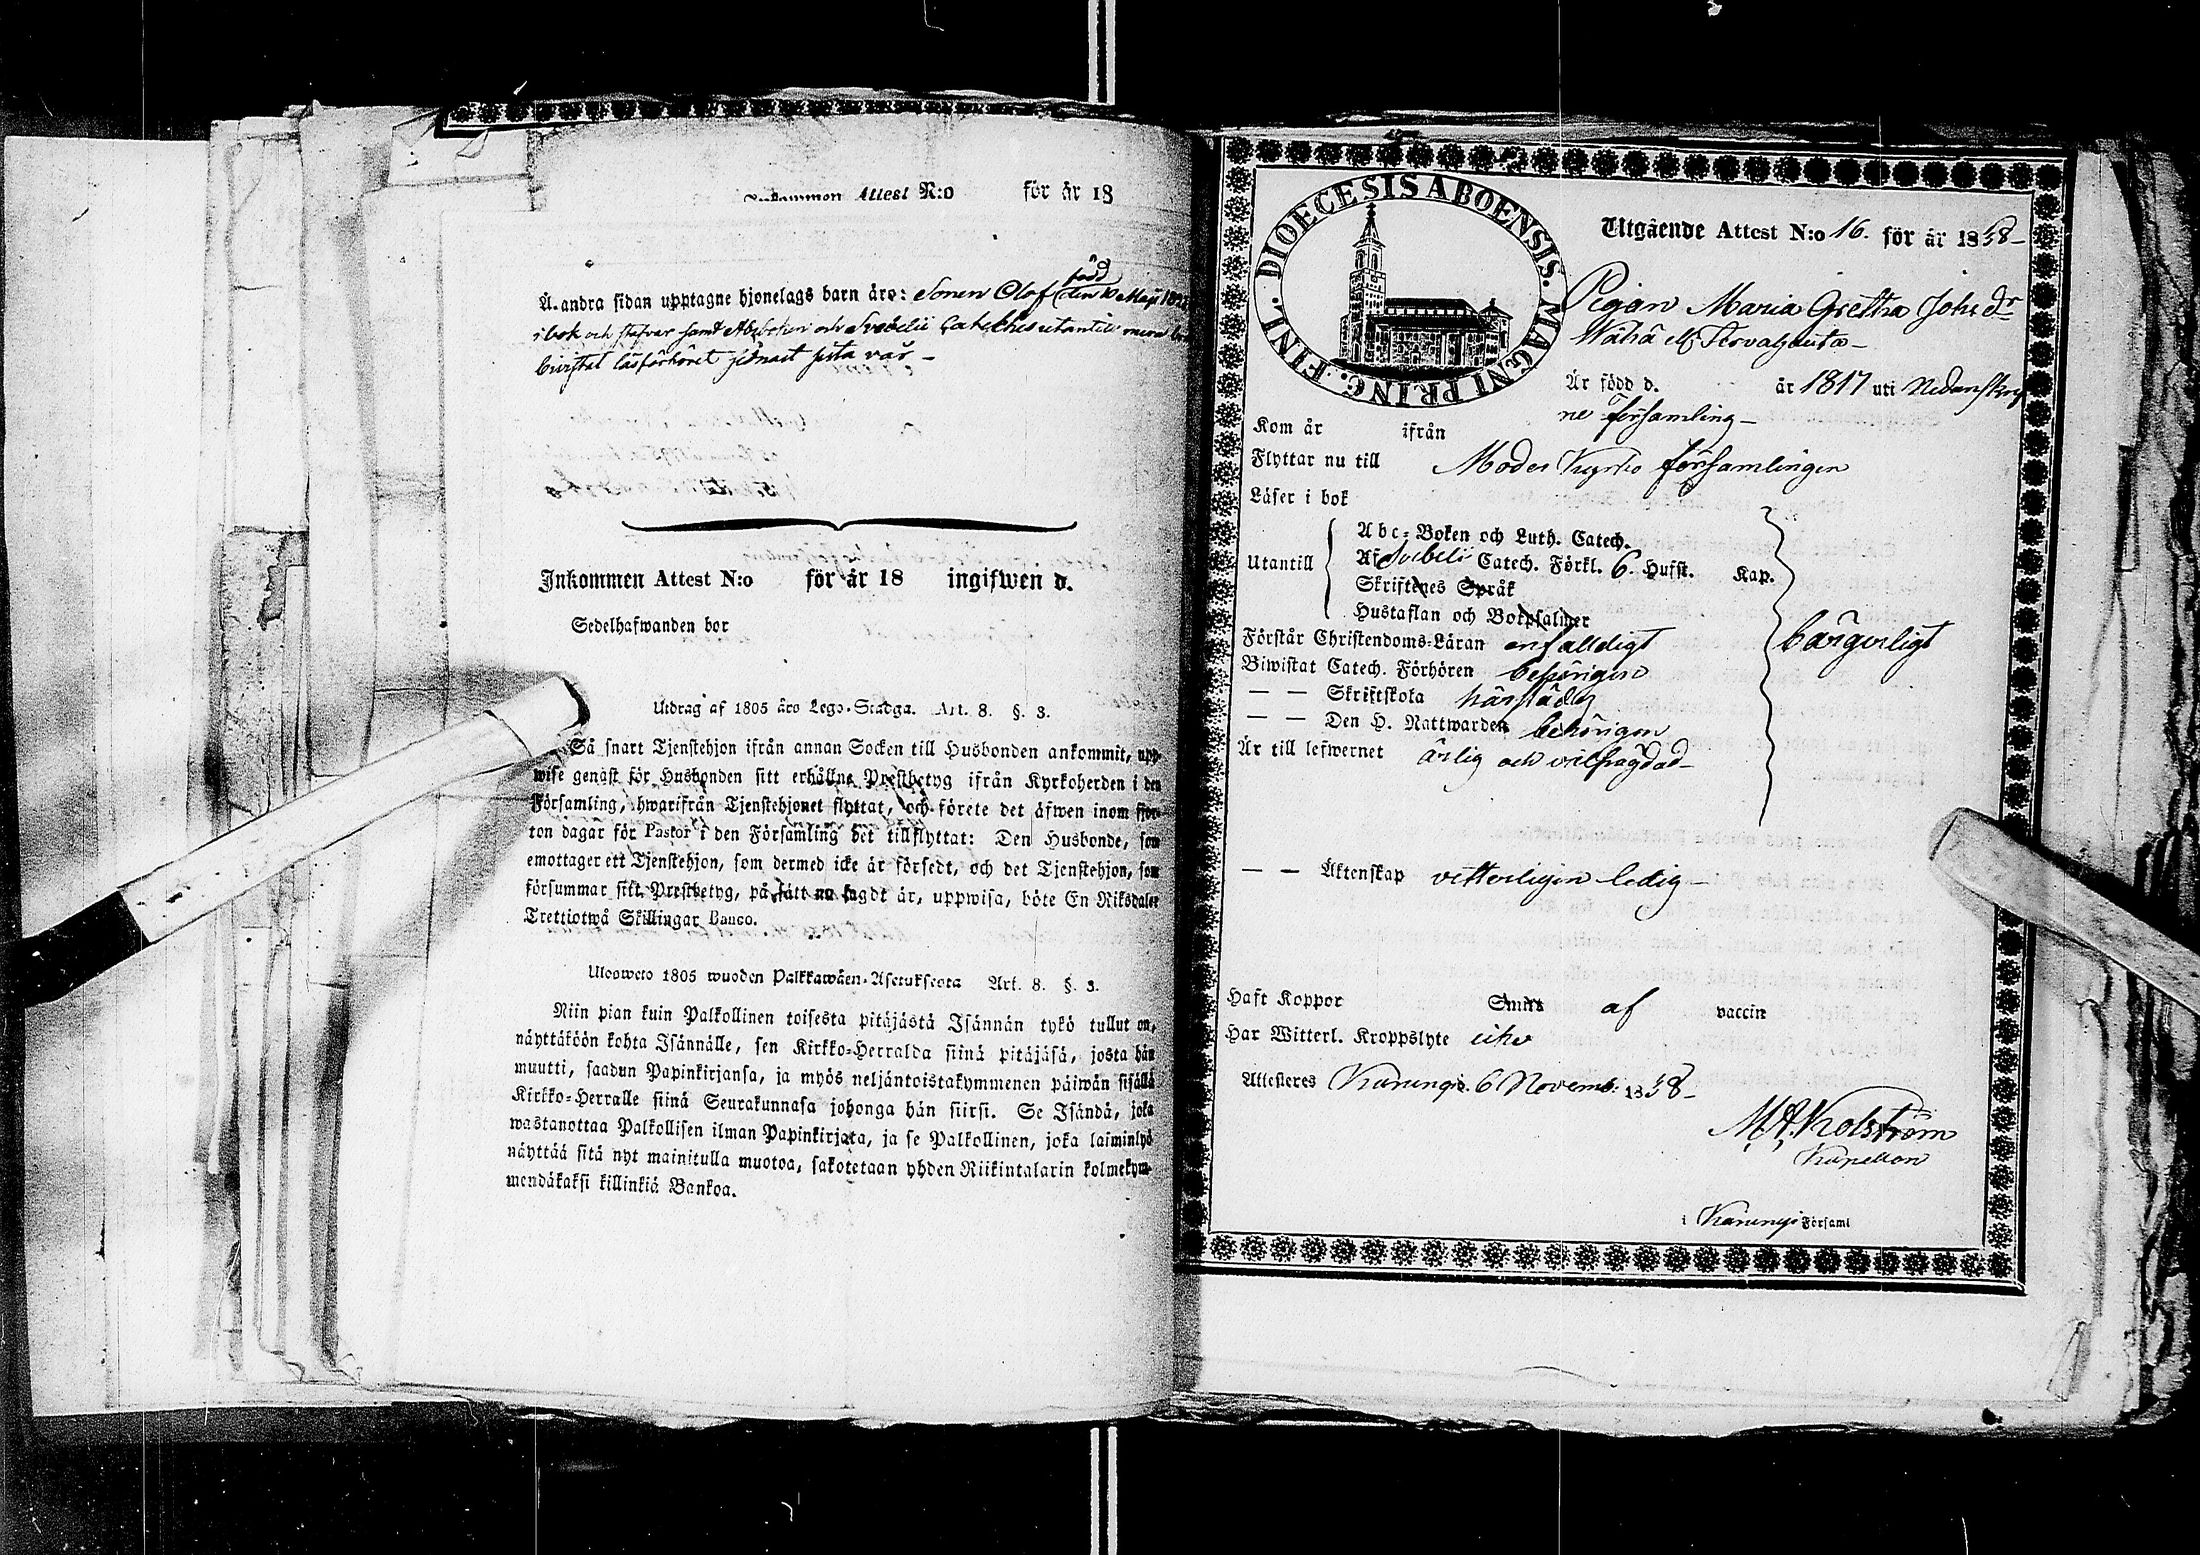 Inkommen Attest N:o för år 18
Å andra sidan upptagne hjonelags barn äro: Sonen Olof född den 10 Maji
i bok och stafvar samt Abcboken och Svebelii Cateches utantill
bivistat läsförhöret sednast sista vår –
Inkommen Attest N:o för år 18 ingifwen d.
Sedelhafwanden bor
Utdrag af 1805 års Lego-Stadga. Art. 8. §. 3.
Så snart Tjenstehjon ifrån annan Socken till Husbonden ankommit, upp-
wise genast för Husbonden sitt erhållne Prestbetyg ifrån Kyrkoherden i den
Församling, hwarifrån Tjenstehjonet flyttat, och förete det äfwen inom fjor-
ton dagar för Pastor i den Församling det tillflyttat: Den Husbonde, som
emottager ett Tjenstehjon, som dermed icke är försedt, och det Tjenstehjon, som
försummar sitt Prestbetyg, på sätt nu sagdt är, uppwisa, böte En Riksdaler
Trettiotwå Skillingar Banco.
Ulosweto 1805 wuoden Palkkawäen-Asetuksesta Art. 8. §. 3.
Niin pian kuin Palkollinen toisesta pitäjästä Isännän tykö tullut on,
näyttäköön kohta Isännälle, sen Kirkko-Herralda siinä pitäjäsä, josta hän
muutti, saadun Papinkirjansa, ja myös neljäntoistakymmenen päiwän sisällä
Kirkko-Herralle siinä Seurakunnasa johonga hän siirsi. Se Isändä, joka
wastanottaa Palkollisen ilman Papinkirjata, ja se Palkollinen, joka laiminlyö
näyttää sitä nyt mainitulla muotoa, sakotetaan yhden Riikintalarin kolmekym-
mendäkaksi killinkiä Bankoa.
DIOECESIS ABOENSIS. MAGNI PRINC. FINL.
Utgående Attest N:o 16. för år 1838–
Pigan Maria Gretha Johs dr
är född d. år 1817 uti Nedanskrif
ne församling –
Kom år ifrån
Flyttar nu till Moder Kyrko församlingen
Läser i bok
Utantill
Abc-Boken och Luth. Catech.
Af Svebeli Catech. Förkl. 6. Hufst. Kap.
Skriftenes Språk
Hustaflan och Botpsalmer
bårgerligt
Förstår Christendoms-Läran enfalldigt
Biwistat Catech. Förhören behörigen
— — Skriftskola härstädes
— — Den H. Nattwarden behörigen
Är till lefwernet ärlig och välfrägdad –
— — Äktenskap vetterligen ledig –
Haft Koppor Smitt af vaccin
Har Witterl. Kroppslyte icke
Attesteras Karungi 6 Novemb: 1838–
M. A. Kolström
Kapellan
i Karungi Församl